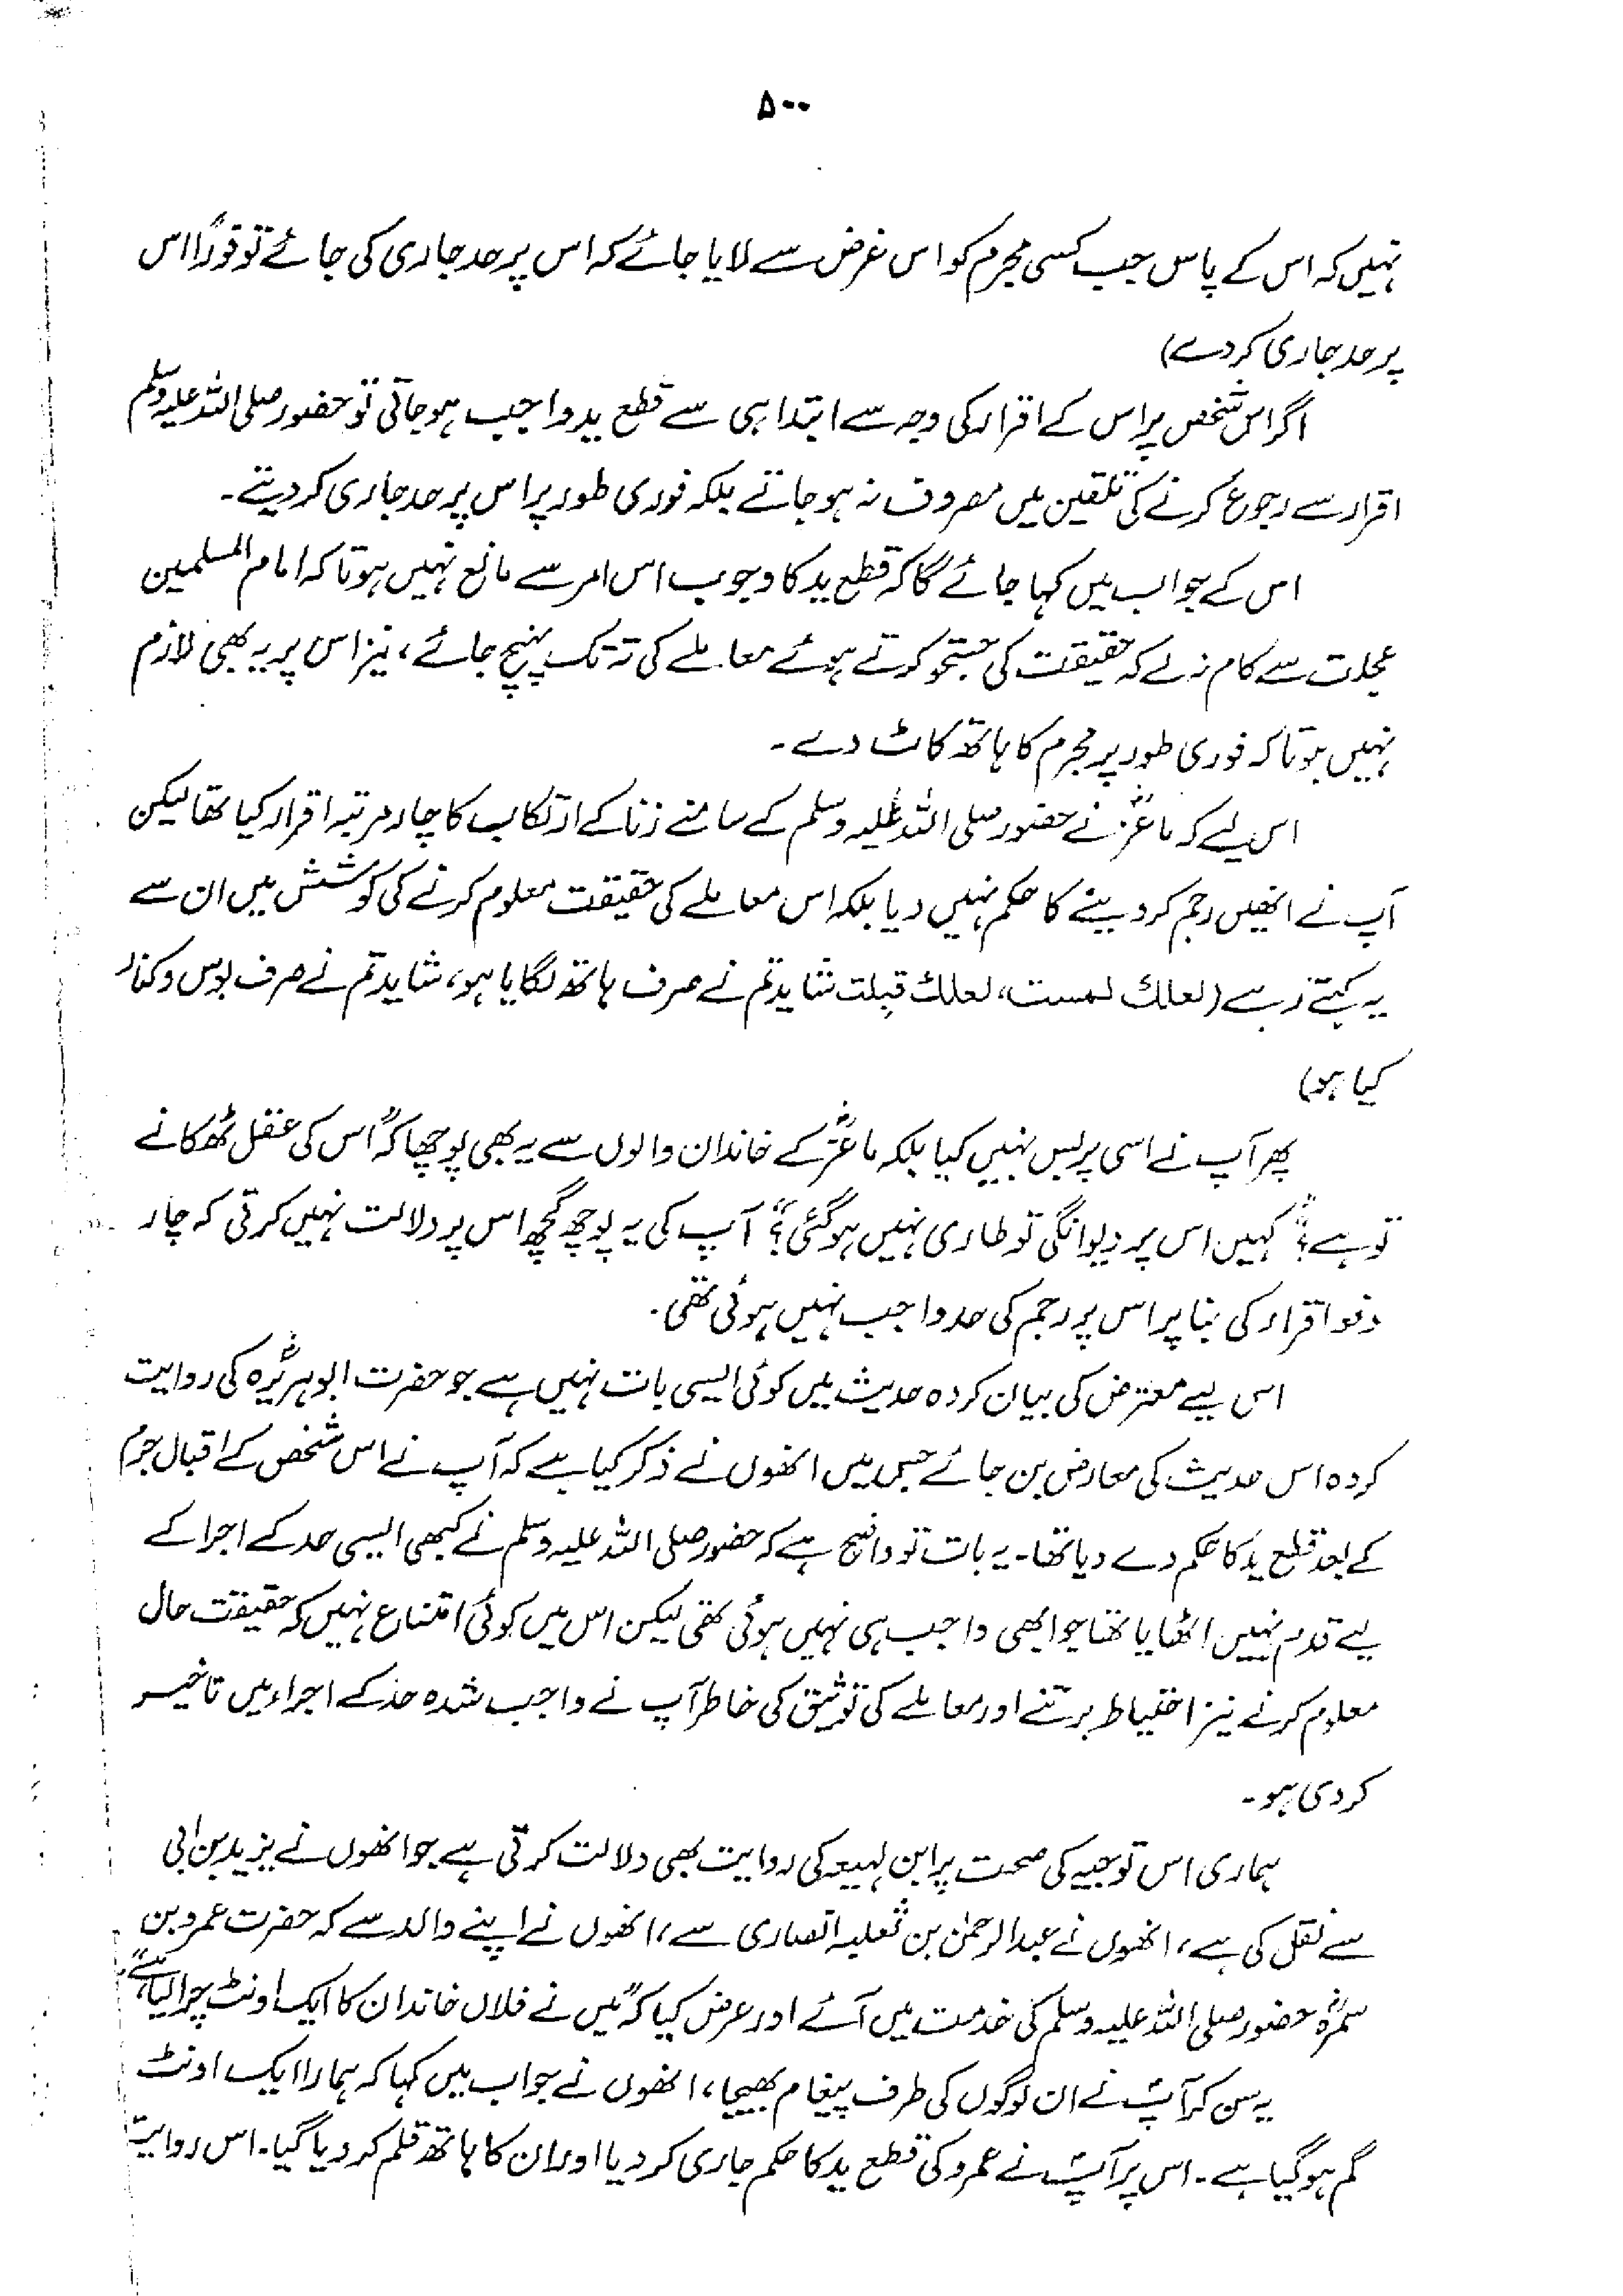 ۵۰۰
نہیں کہ اس کے پاس جب کسی مجرم کو اس غرض سے لایا جائے کہ اس پر حد جاری کی جائے تو فوراً اس
پر حد جاری کر دے)
اگر اس شخص پر اس کے اقرار کی وجہ سے ابتدا ہی سے قطع ید واجب ہو جاتی تو حضور صلی اللہ علیہ وسلم
اقرار سے رجوع کرنے کی تلقین میں مصروف نہ ہو جاتے بلکہ فوری طور پر اس پر حد جاری کر دیتے۔
اس کے جواب میں کہا جائے گا کہ قطع ید کا وجوب اس امر سے مانع نہیں ہوتا کہ امام المسلمین
عجلت سے کام نہ لے کہ حقیقت کی جستجو کرتے ہوئے معاملے کی تہ تک پہنچ جائے، نیز اس پر یہ بھی لازم
نہیں ہوتا کہ فوری طور پر مجرم کا ہاتھ کاٹ دے۔
اس لیے کہ ماعزؓ نے حضور صلی اللہ علیہ وسلم کے سامنے زنا کے ارتکاب کا چار مرتبہ اقرار کیا تھا لیکن
آپ نے انھیں رجم کر دینے کا حکم نہیں دیا بلکہ اس معاملے کی حقیقت معلوم کرنے کی کوشش میں ان سے
یہ کہتے رہے (لعلك لمست، لعلك قبلت شاید تم نے صرف ہاتھ لگایا ہو، شاید تم نے صرف بوس و کنار
کیا ہو)
پھر آپ نے اسی پر بس نہیں کیا بلکہ ماعزؓ کے خاندان والوں سے یہ بھی پوچھا کہ "اس کی عقل ٹھکانے
تو ہے؟" کہیں اس پر دیوانگی تو طاری نہیں ہو گئی؟" آپ کی یہ پوچھ گچھ اس پر دلالت نہیں کرتی کہ چار
دفعہ اقرار کی بنا پر اس پر رجم کی حد واجب نہیں ہوئی تھی۔
اس لیے معترض کی بیان کردہ حدیث میں کوئی ایسی بات نہیں ہے جو حضرت ابوہریرہؓ کی روایت
کردہ اس حدیث کی معارض بن جائے جس میں انھوں نے ذکر کیا ہے کہ آپ نے اس شخص کے اقبال جرم
کے بعد قطع ید کا حکم دے دیا تھا۔ یہ بات تو واضح ہے کہ حضور صلی اللہ علیہ وسلم نے کبھی ایسی حد کے اجرا کے
لیے قدم نہیں اٹھایا تھا جو ابھی واجب ہی نہیں ہوئی تھی لیکن اس میں کوئی امتناع نہیں کہ حقیقت حال
معلوم کرنے نیز احتیاط برتنے اور معاملے کی توثیق کی خاطر آپ نے واجب شدہ حد کے اجراء میں تاخیر
کر دی ہو۔
ہماری اس توجیہ کی صحت پر ابن لہیعہ کی روایت بھی دلالت کرتی ہے جو انھوں نے یزید بن ابی
سے نقل کی ہے، انھوں نے عبدالرحمٰن بن ثعلبہ انصاری سے، انھوں نے اپنے والد سے کہ حضرت عمرو بن
سمرہؓ حضور صلی اللہ علیہ وسلم کی خدمت میں آئے اور عرض کیا کہ "میں نے فلاں خاندان کا ایک اونٹ چرا لیا ہے"
یہ سن کر آپؐ نے ان لوگوں کی طرف پیغام بھیجا، انھوں نے جواب میں کہا کہ ہمارا ایک اونٹ
گم ہو گیا ہے۔ اس پر آپؐ نے عمرو کی قطع ید کا حکم جاری کر دیا اور ان کا ہاتھ قلم کر دیا گیا۔ اس روایت